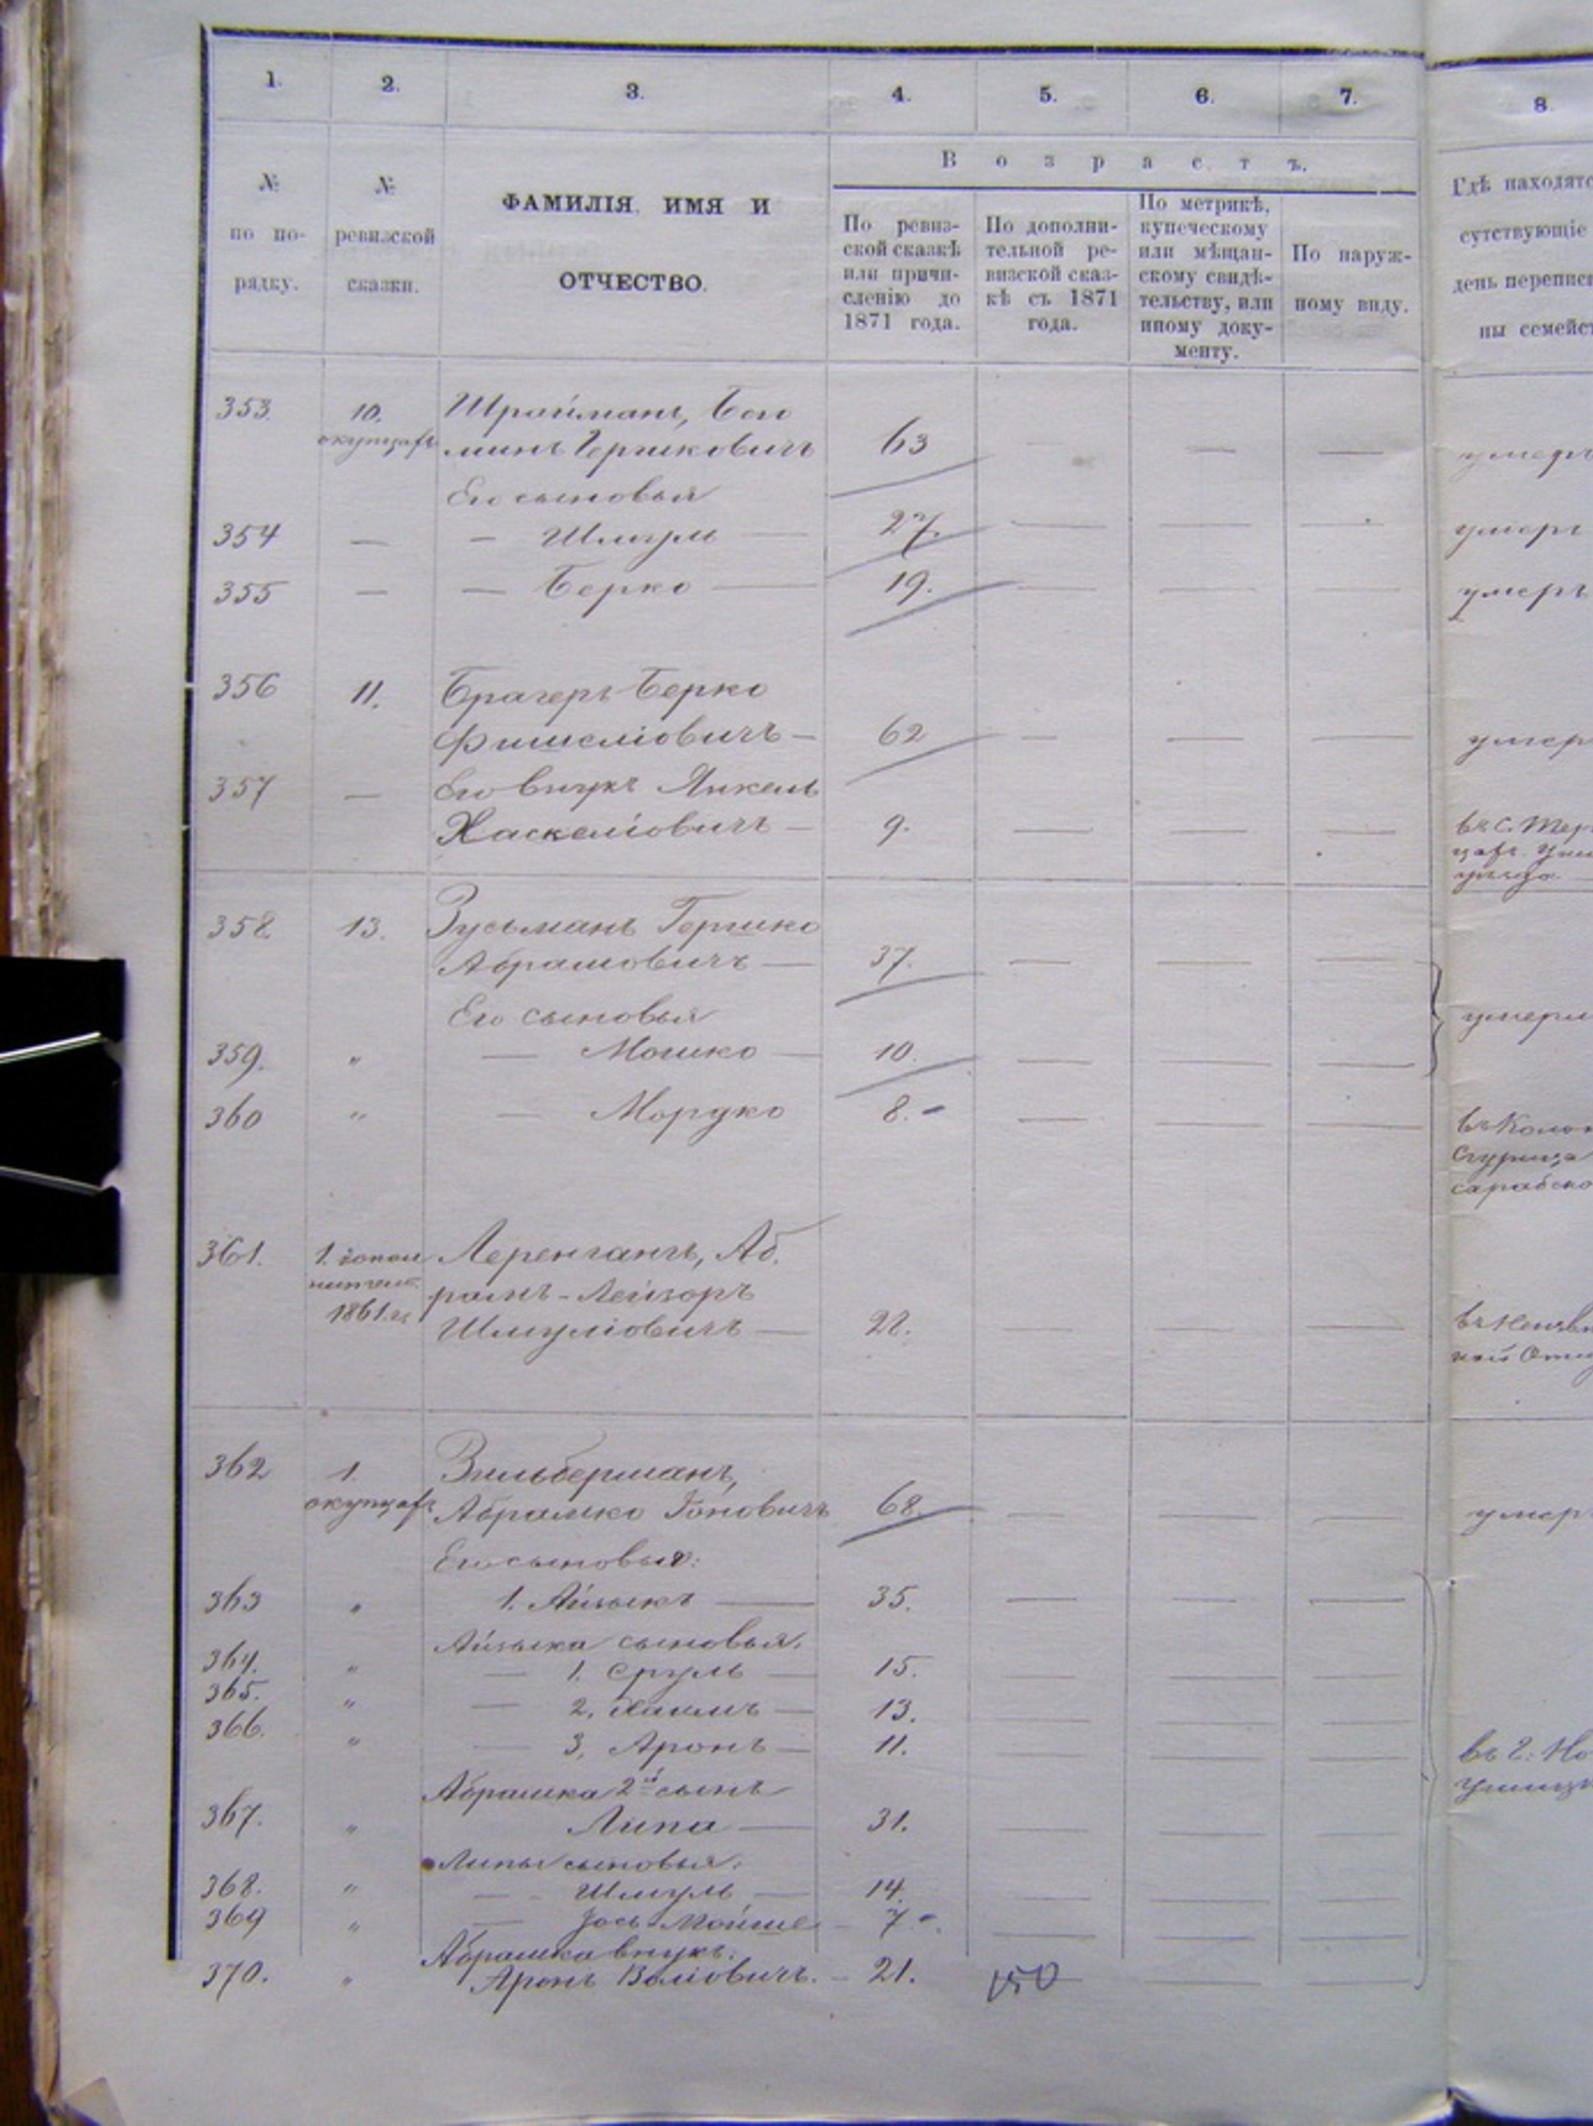 1. 2. 3. 4. 5. 6. 7. 8
№ по по-рядку.
№ ревизской сказки.
ФАМИЛІЯ, ИМЯ И
ОТЧЕСТВО.
Возрастъ.
По ревиз-
ской сказкѣ
или причи-
сленію до
1871 года.
По дополни-
тельной ре-
визской сказ-
кѣ съ 1871
года.
По метрикѣ,
купеческому
или мѣщан-
скому свидѣ-
тельству, или
иному доку-
менту.
По наруж-
ному виду.
Гдѣ находятс
сутствующіе
день переписи
ны семейст
353 10. Шройманъ, Беню
минъ Гершковичъ 63 — — умеръ
Его сыновья
354 — — Шмуль — 27. — — — умеръ
355 — — Берко — 19. — — — умеръ
356 11. Брагеръ Берко
Фишеліовичъ — 62 — — — умер
357 — Его внукъ Янкель
Хаскеліовичъ — 9. — — —
358. 13. Зусьманъ Гершко
Абрамовичъ — 37. — — —
Его сыновья
умерли
359. „ — Мошко — 10. — — —
360 „ — Мордко 8. — — — —
361. 1. допол
нител.
1861 г. Леренганъ, Аб.
рамъ-Лейзоръ
Шмуліовичъ — 22. — — —
362 1. Зильберманъ,
Абрамко Іоновичъ 68. — — — умеръ
Его сыновья:
363 „ 1. Айзыкъ — 35. — — —
Айзыка сыновья:
364. „ — 1. Сруль — 15. — — —
365. „ — 2. Хаимъ — 13. — — —
366. „ — 3. Аронъ — 11. — — —
Абрашка 2й сынъ
367. „ Липа — 31. — — —
Липы сыновья:
368. „ — Шмуль — 14. — — —
369 „ — Іось Мойше — 7. — — —
Абрашка внукъ.
370. „ Аронъ Воліовичъ. — 21. 150 — —